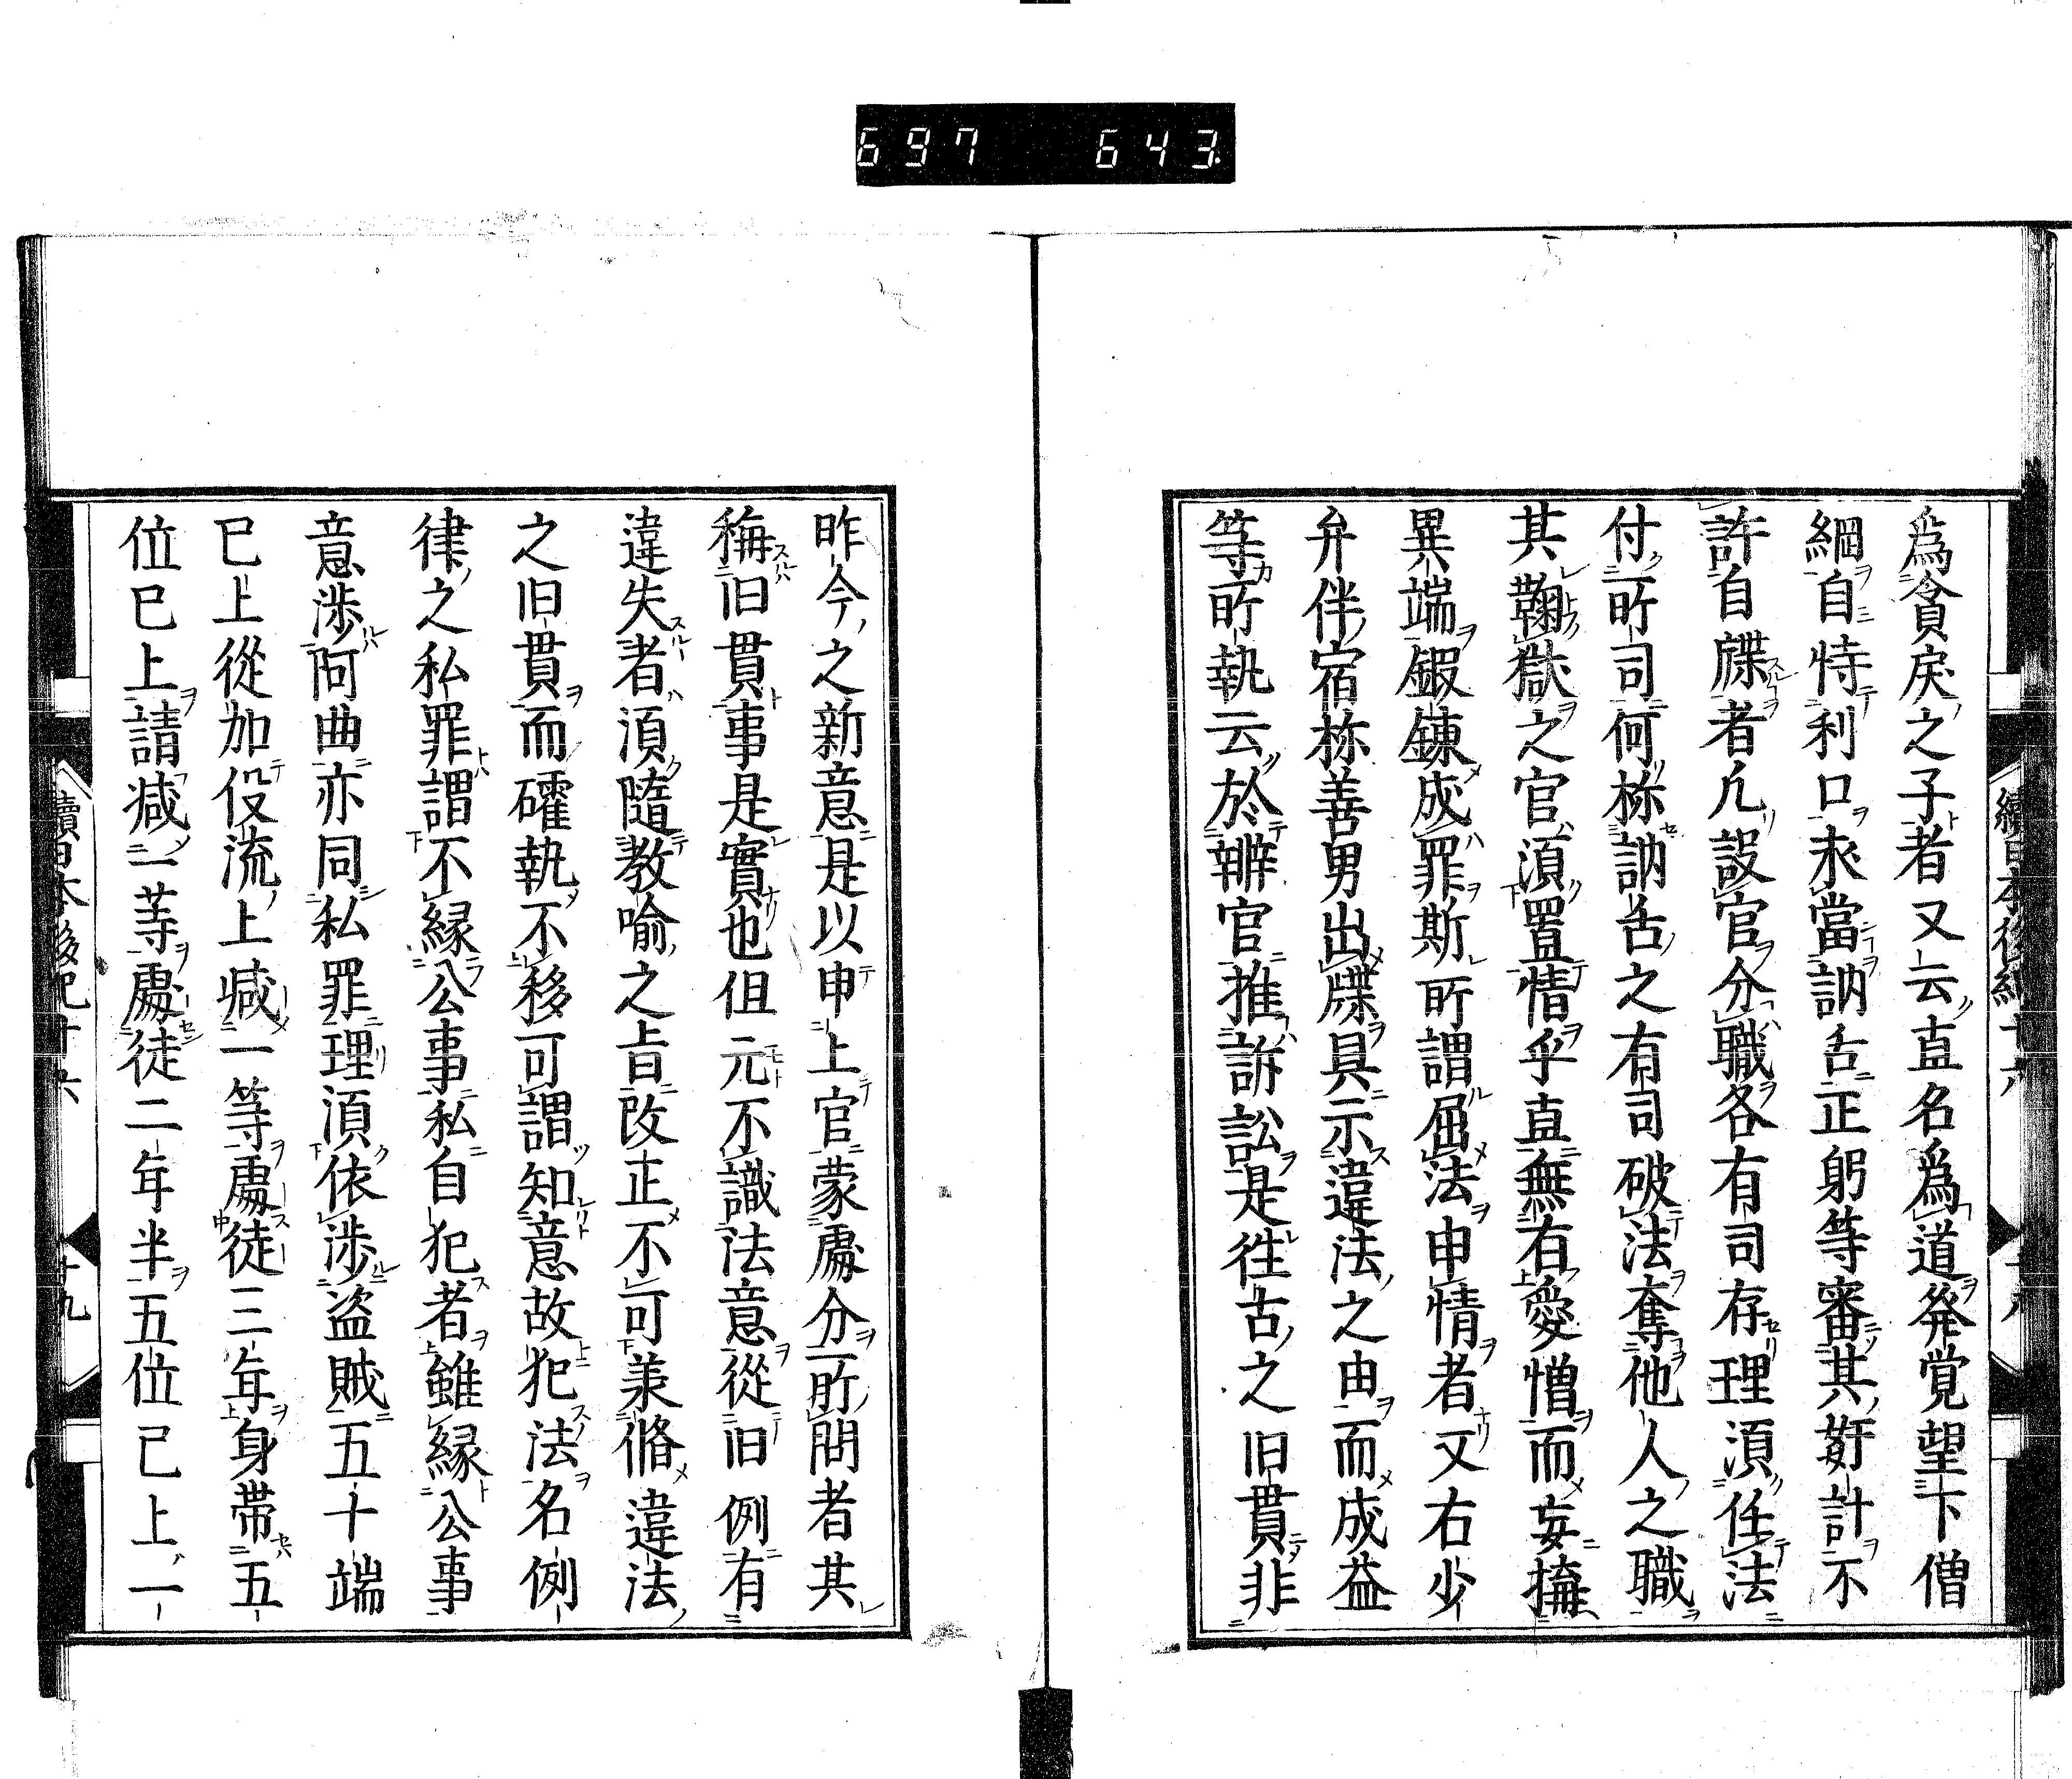 697 643
續日本後紀十六 十八
爲貪戻之子者又云直名爲道発覚望下僧
綱自恃利口求當訥舌正躬等審其姧計不
許自牒者凢設官分職各有司存理須任法
付所司何秪訥舌之有司破法奪他人之職
其鞠獄之官須置情乎直無有愛憎而妄搆
異端鍜錬成罪斯所謂屈法申情者又右少
弁伴宿祢善男出牒具示違法之由而成益
等所執云於辨官推訴訟是徃古之旧貫非
昨今之新意是以申上官蒙處分所問者其
稱旧貫事是實也但元不識法意從旧例有
違失者須隨教喩之旨改正不可兼脩違法
之旧貫而確執不移可謂知意故犯法名例
律之私罪謂不縁公事私自犯者雖縁公事
意渉阿曲亦同私罪理須依渉盗賊五十端
已上從加役流上減一等處徒三年身帯五
位已上請減一等處徒二年半五位已上一
續日本後紀十六 十九